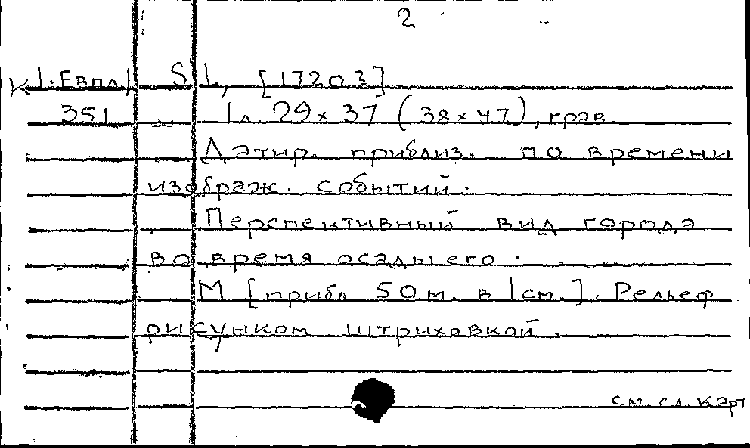 2
К 1-Евпл S. l., [1720?]
351 1 л. 29×37 (38×47), грав.
Датир. приблиз. по времени
изображ. событий.
Перспективный вид города
во время осады его.
М [прибл 50 м. в 1 см.]. Рельеф
рисунком штриховкой.
см. сл. карт